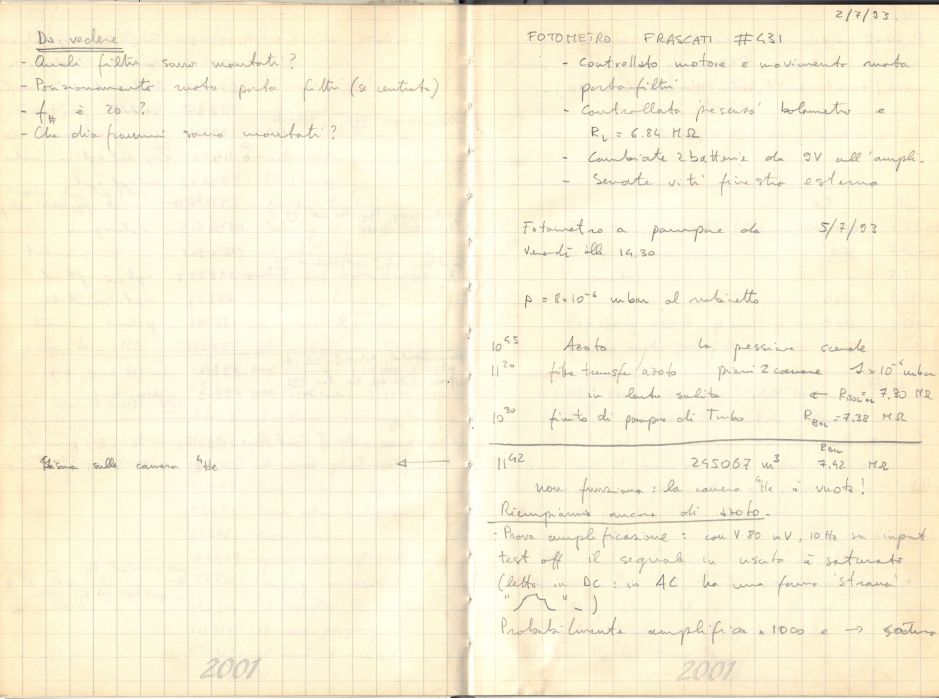 Da vedere
- Quali filtri sono montati?
- Posizionamento ruota porta filtri (se centrata)
- f# è 20?
- Che diaframmi sono montati?
sulla camera ⁴He ←
2001
2/7/93.
FOTOMETRO FRASCATI #431
- Controllato motore e movimento ruota
porta filtri
- Controllata presenza bolometro e
R_L = 6.84 MΩ
- Cambiate 2 batterie da 9V all'ampli.
- Serrate viti finestra esterna
Fotometro a pompare da 5/7/93
Venerdì alle 14.30
p = 8x10⁻⁶ mbar al rubinetto
10⁴⁵ Azoto la pressione scende
11²⁰ fine transfer azoto pieni 2 camere 1x10⁻⁶ mbar
in lenta salita ← 7.30 MΩ
10³⁰ finito di pompare di Turbo R_Bol = 7.38 MΩ
R_Bol
11⁴² 245067 m³ 7.42 MΩ
non funziona: la camera ⁴He è vuota!
Riempiamo ancora di azoto.
- Prova amplificazione: con V 80 mV, 10 Hz su input
test off il segnale in uscita è saturato
(letto in DC: in AC ha una forma 'strana'
" " - )
Probabilmente amplifica x 1000 e → satura
2001